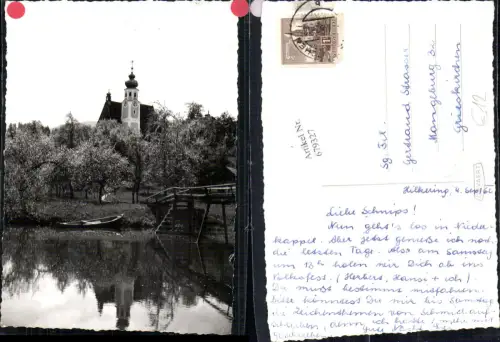 Artikel Nr.
679327
Sg. Frl.
Gertraud Strasser
Manglburg
Grieskirchen
Hilkering, 4. Sept.
Liebe Schnipsi!
Nun geht's los in Nieder
kappel. Aber jetzt genieße ich noch
die letzten Tage. Also am Samstag
um 13h holen wir Dich ab ins
Volksfest. (Herbert, Hansi + ich)
Du mußt bestimmt mitfahren.
bitte könntest Du mir bis Samstag
die Zeichenthemen von Schmid auf-
schreiben, denn ich